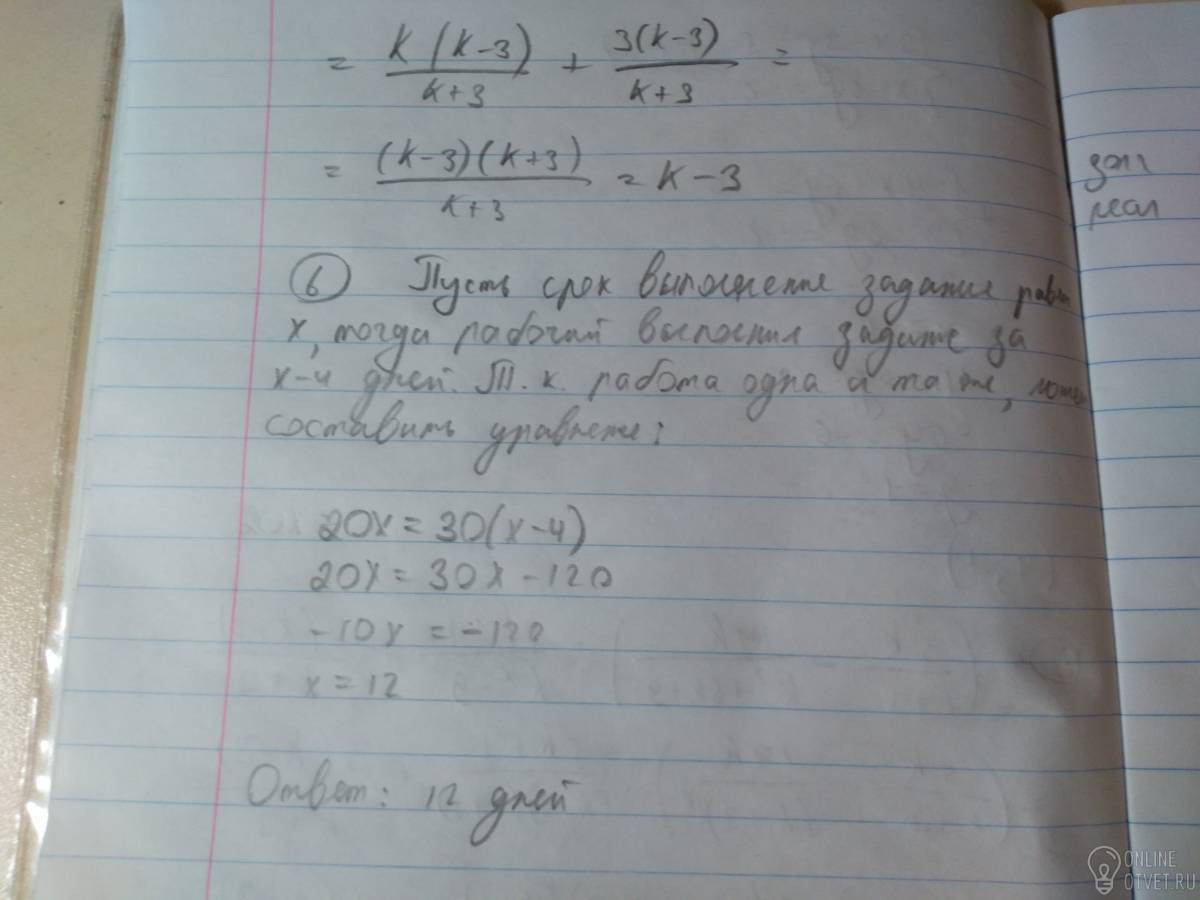 = K(K-3)/K+3 + 3(K-3)/K+3 =
= (K-3)(K+3)/K+3 = K-3
6 Пусть срок выполнения задания равен
x, тогда рабочий выполнил задание за
x-4 дней. Т.к. работа одна и та же, можем
составить уравнение:
20x = 30(x-4)
20x = 30x - 120
-10x = -120
x = 12
Ответ: 12 дней
ONLINE
OTVET.RU